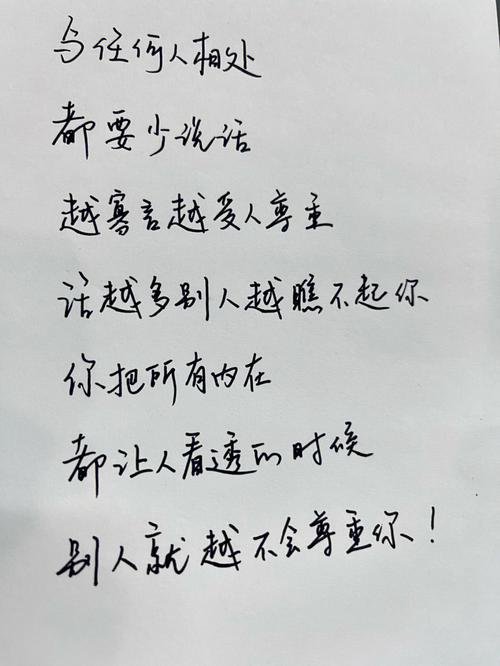 与任何人相处
都要少说话
越寡言越受人尊重
话越多别人越瞧不起你
你把所有内在
都让人看透的时候
别人就越不会尊重你！